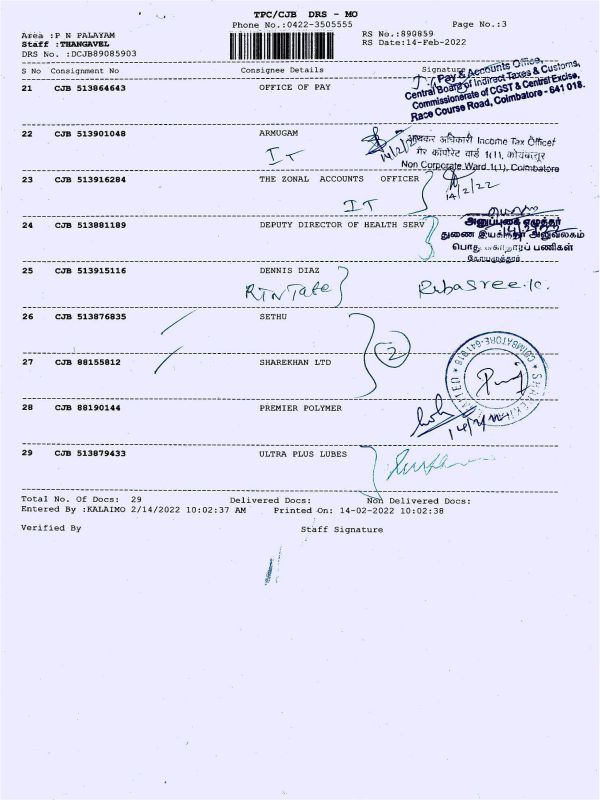 TPC/CJB DRS - MO
Phone No.:0422-3505555
Page No.:3
Area :P N PALAYAM
RS No.:890859
Staff :THANGAVEL
RS Date:14-Feb-2022
DRS No. :DCJB89085903
S No Consignment No Consignee Details Signature
21 CJB 513864643 OFFICE OF PAY
Pay & Accounts Office,
Central Board of Indirect Taxes & Customs,
Commissionerate of CGST & Central Excise,
Race Course Road, Coimbatore - 641 018.
22 CJB 513901048 ARMUGAM
IT
14/2/22
आयकर अधिकारी Income Tax Officer
गैर कॉर्पोरेट वार्ड 1(1), कोयंबत्तूर
Non Corporate Ward 1(1), Coimbatore
23 CJB 513916284 THE ZONAL ACCOUNTS OFFICER
IT
14/2/22
24 CJB 513881189 DEPUTY DIRECTOR OF HEALTH SERV
துணை இயக்குநர் அலுவலகம்
பொது சுகாதாரப் பணிகள்
கோயமுத்தூர்
25 CJB 513915116 DENNIS DIAZ
Rubasree.k.
26 CJB 513876835 SETHU
2
27 CJB 88155812 SHAREKHAN LTD
COIMBATORE-641018
28 CJB 88190144 PREMIER POLYMER
29 CJB 513879433 ULTRA PLUS LUBES
Total No. Of Docs: 29 Delivered Docs: Non Delivered Docs:
Entered By :KALAIMO 2/14/2022 10:02:37 AM Printed On: 14-02-2022 10:02:38
Verified By Staff Signature